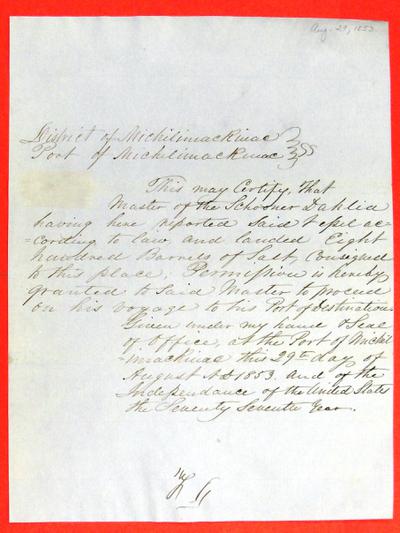 Aug. 29, 1853
District of Michilimackinac
Port of Michilimackinac
This may Certify, that
Master of the Schooner Dahlia
having here reported Said Vessel ac-
=cording to law, and landed Eight
hundred Barrels of Salt, Consigned
to this place; Permission is hereby
granted to Said Master to proceed
on his voyage to his Port of Destination
Given under my hand & Seal
of Office, at the Port of Michil-
=imackinac this 29th day of
August AD 1853. and of the
Independance of the United States
the Seventy Seventh Year.